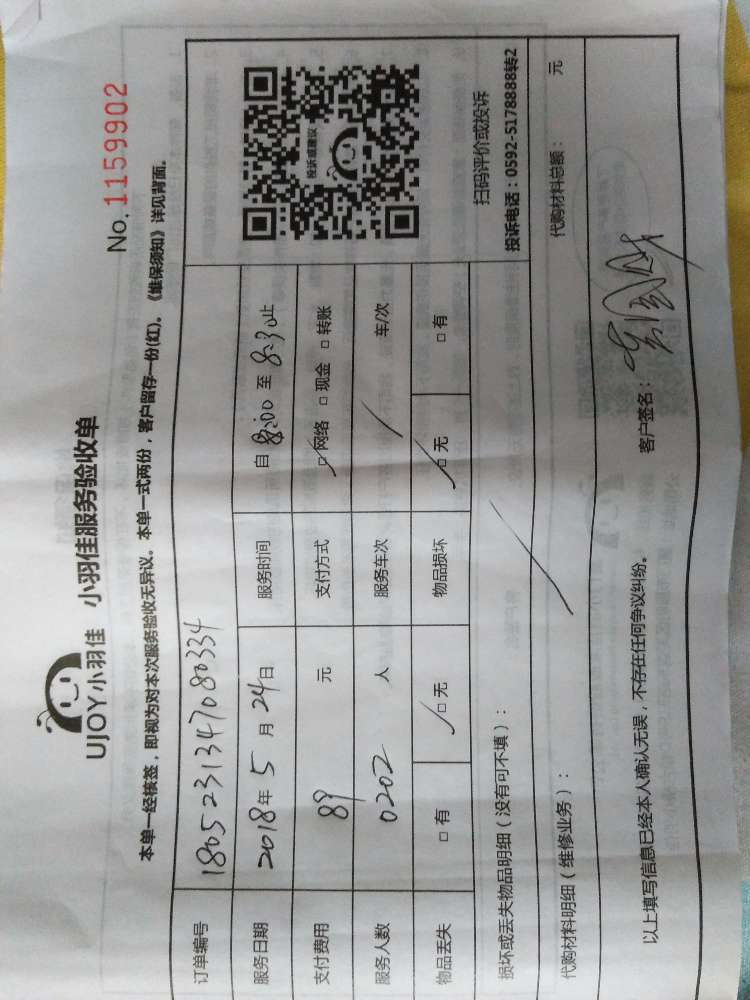 UJOY小羽佳 小羽佳服务验收单
No. 1159902
本单一经核签，即视为对本次服务验收无异议。本单一式两份，客户留存一份(红)。《维保须知》详见背面。
订单编号 1805231347080334
服务日期 2018年5月24日 服务时间 自 8:00 至 8:30止
支付费用 89 元 支付方式 □网络 □现金 □转账
服务人数 0202 人 服务车次 车/次
物品丢失 □有 □无 物品损坏 □无 □有
投诉或建议
扫码评价或投诉
投诉电话：0592-5178888转2
损坏或丢失物品明细（没有可不填）：
代购材料明细（维修业务）： 代购材料总额： 元
以上填写信息已经本人确认无误，不存在任何争议纠纷。 客户签名：